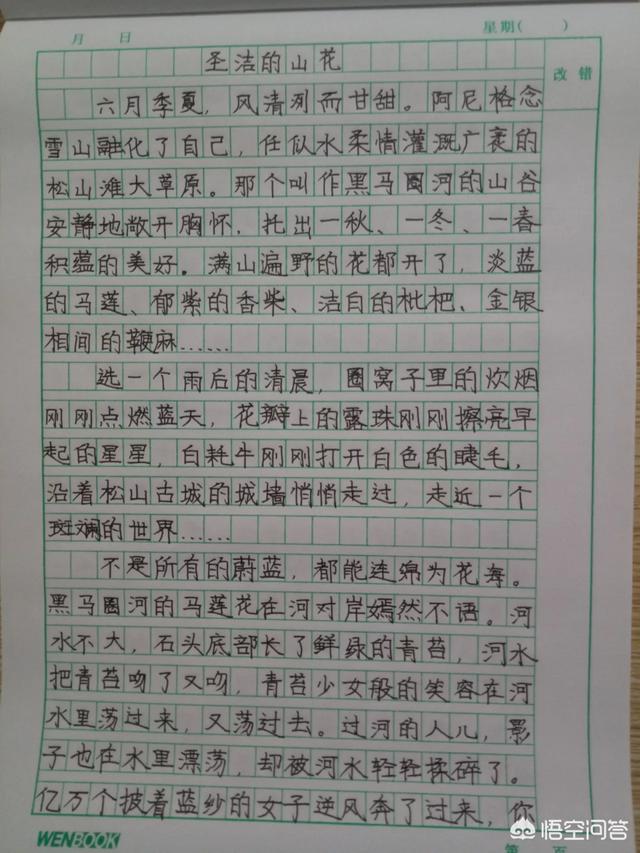 月 日 星期( )
圣洁的山花
改错
六月季夏，风清冽而甘甜。阿尼格念
雪山融化了自己，任似水柔情灌溉广袤的
松山滩大草原。那个叫作黑马圈河的山谷
安静地敞开胸怀，托出一秋、一冬、一春
积蕴的美好。满山遍野的花都开了，淡蓝
的马莲、郁紫的香柴、洁白的枇杷、金银
相间的鞭麻……
选一个雨后的清晨，圈窝子里的炊烟
刚刚点燃蓝天，花瓣上的露珠刚刚擦亮早
起的星星，白牦牛刚刚打开白色的睫毛，
沿着松山古城的城墙悄悄走过，走近一个
斑斓的世界……
不是所有的蔚蓝，都能连绵为花海。
黑马圈河的马莲花在河对岸嫣然不语。河
水不大，石头底部长了鲜绿的青苔，河水
把青苔吻了又吻，青苔少女般的笑容在河
水里荡过来，又荡过去。过河的人儿，影
子也在水里漂荡，却被河水轻轻揉碎了。
亿万个披着蓝纱的女子逆风奔了过来，你
WENBOOK
第 页
悟空问答